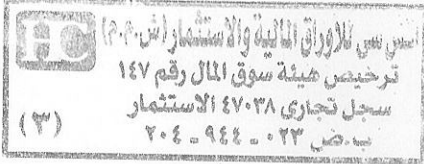 اتش سي للاوراق المالية والاستثمار (ش.م.م)
HC
ترخيص هيئة سوق المال رقم ١٤٧
سجل تجارى ٤٧٠٣٨ الاستثمار
ب.ض ٠٢٣ - ٩٤٤ - ٢٠٤
(٣)